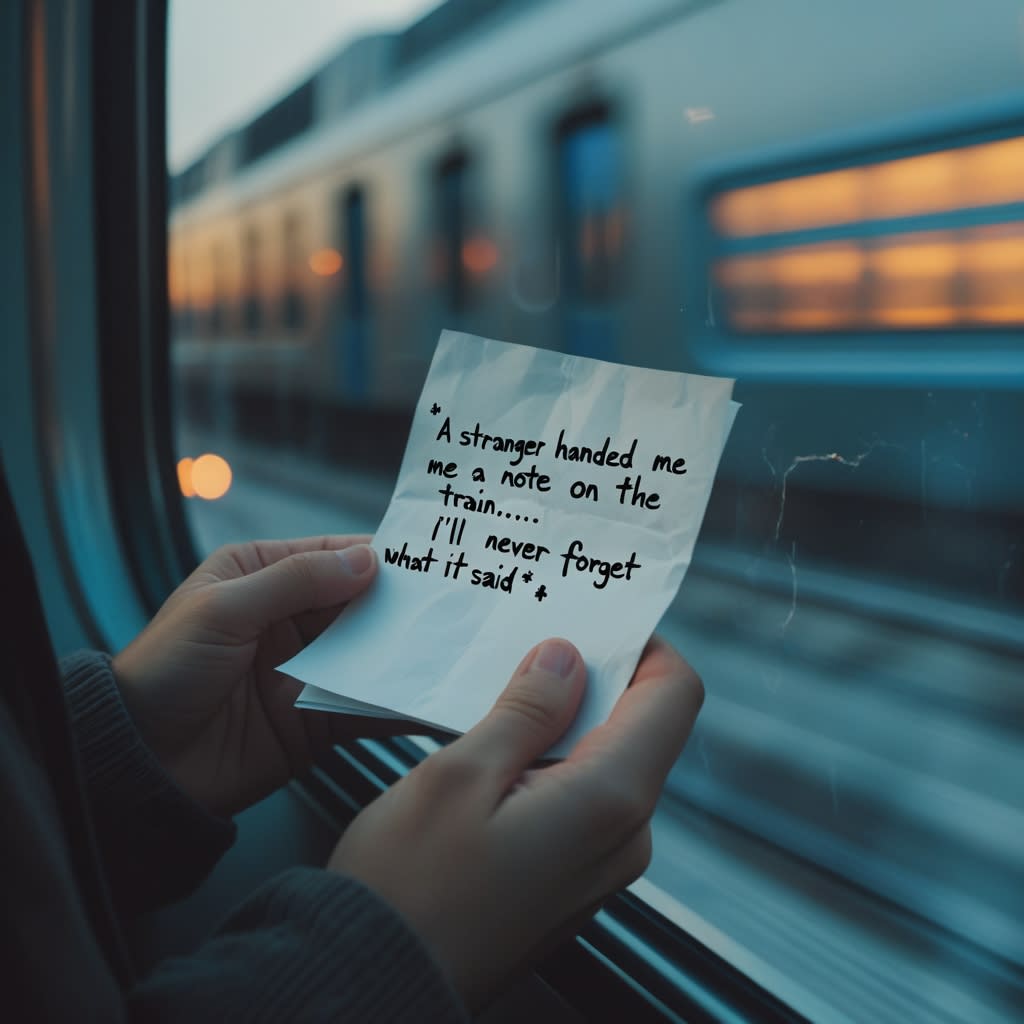 "A stranger handed me
me a note on the
train.....
I'll never forget
what it said * *